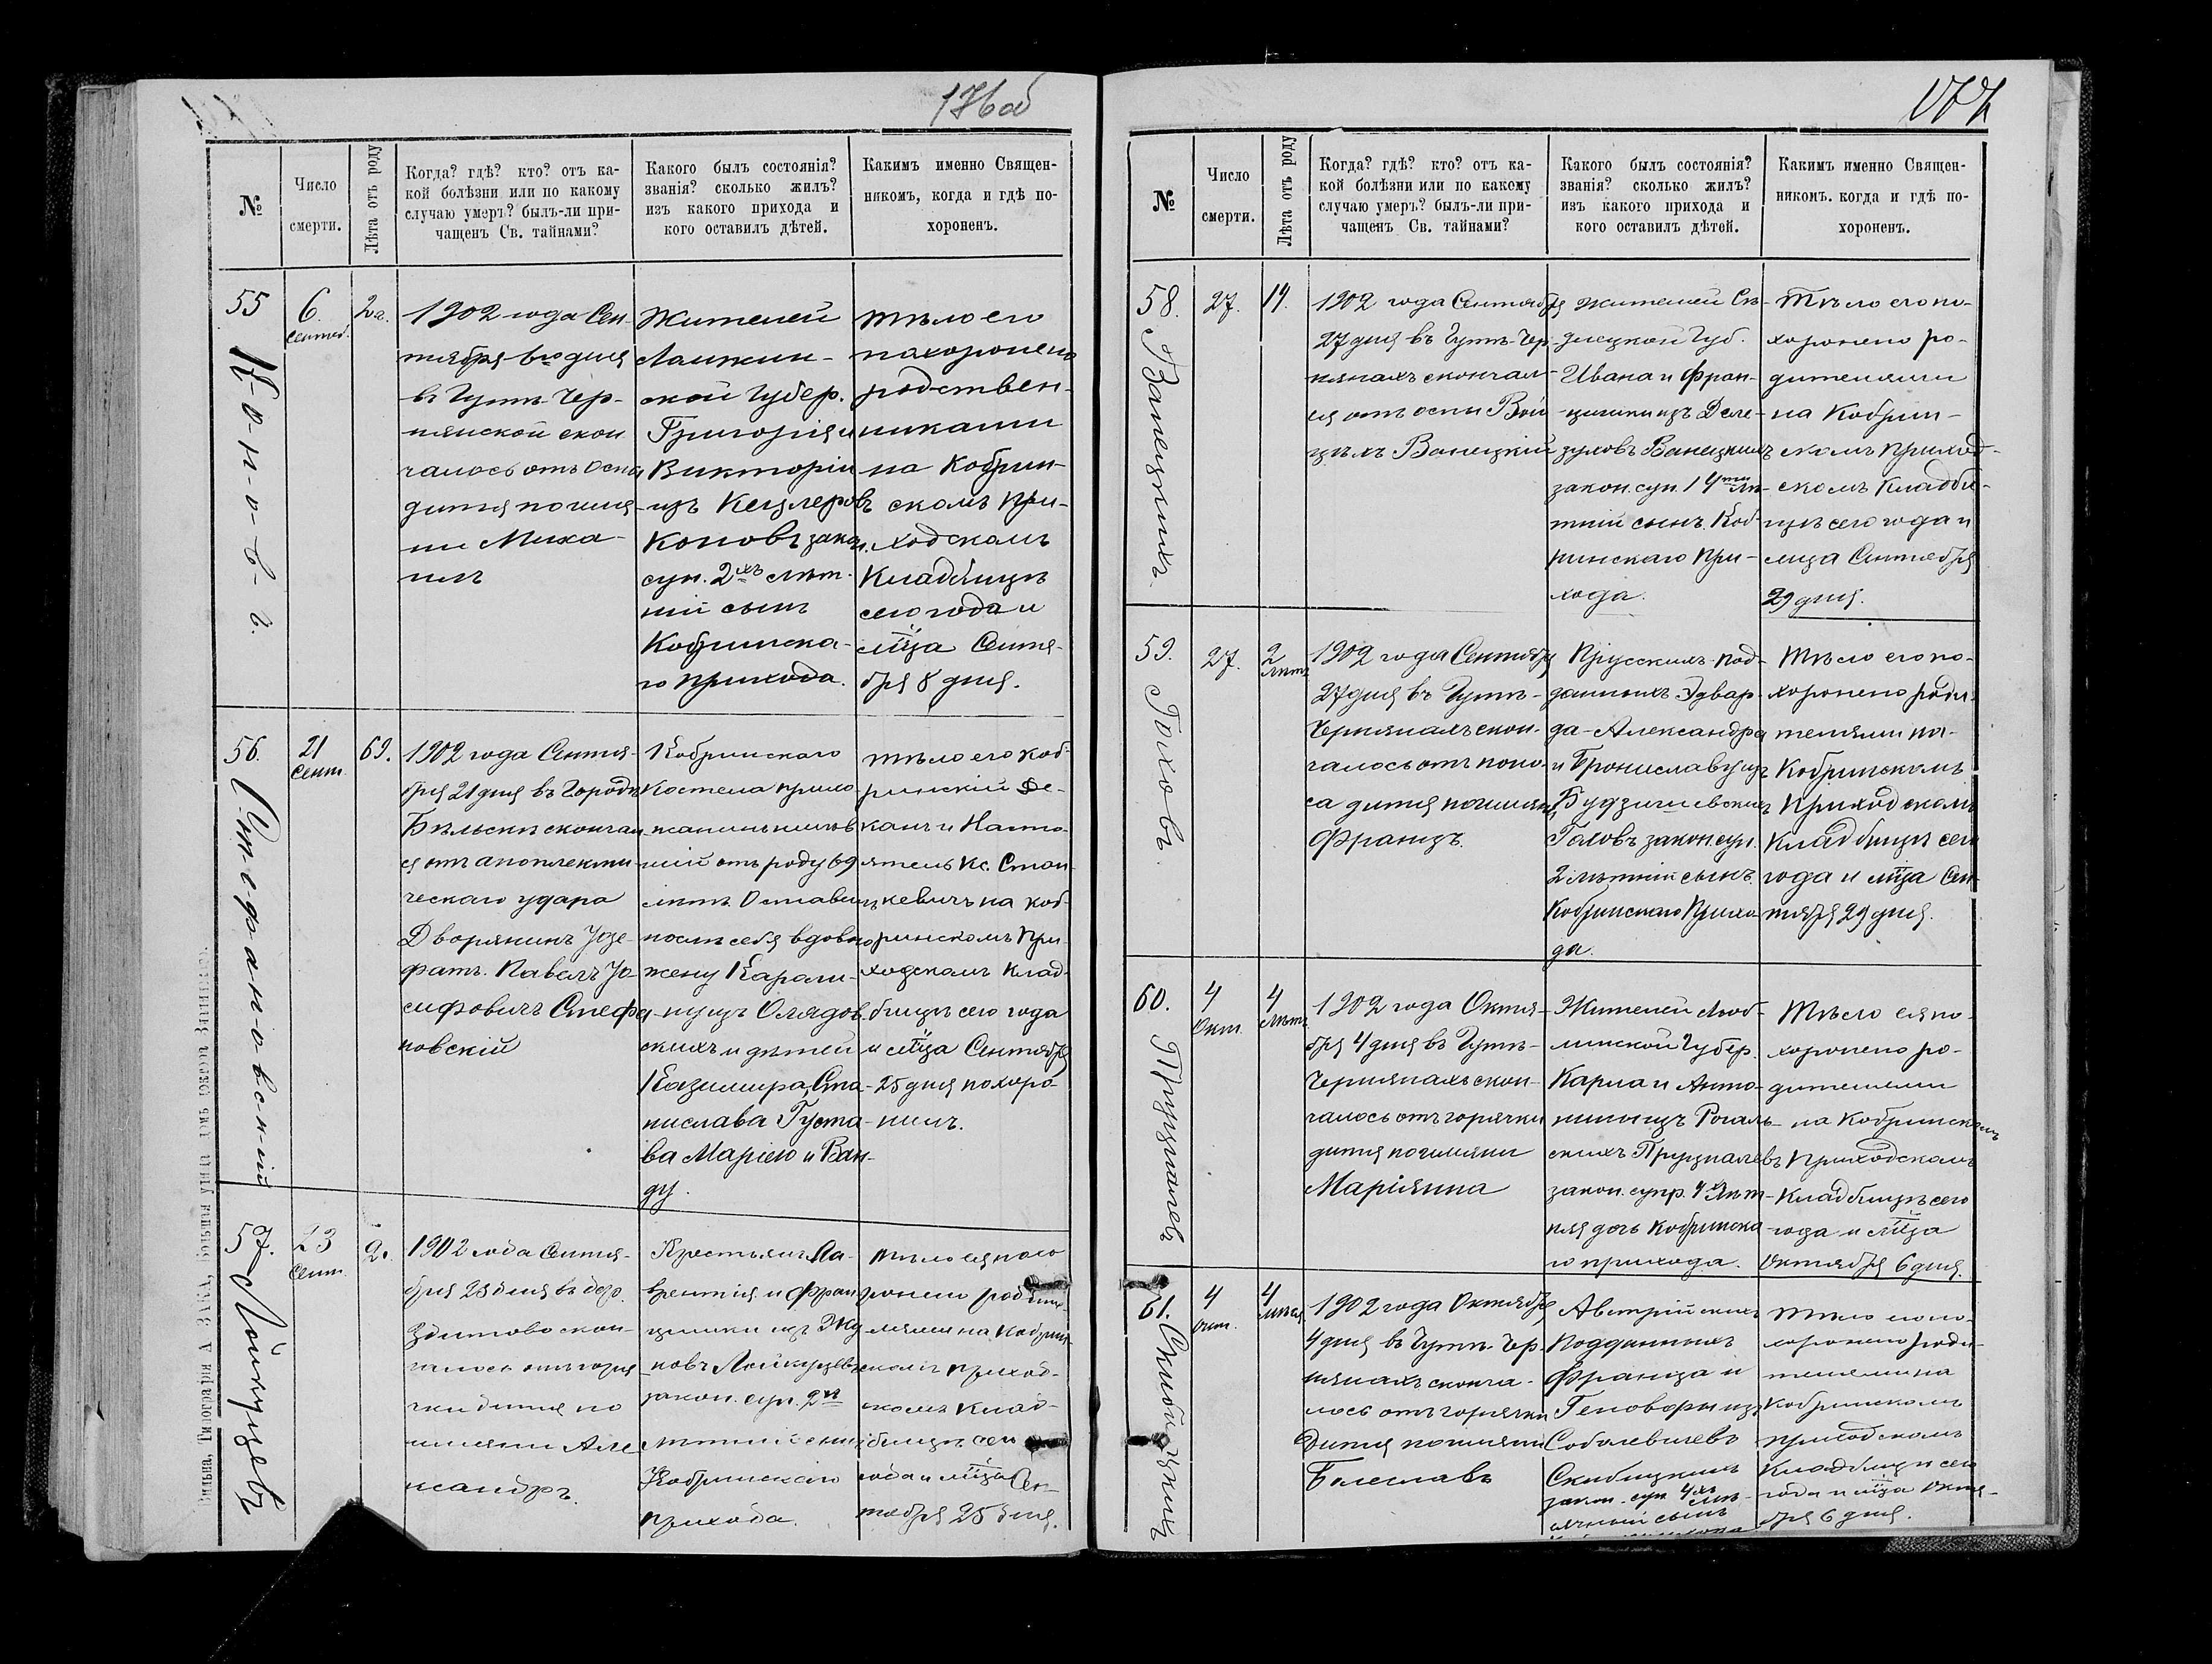 176об
№
Число
смерти.
Лѣта отъ роду
Когда? гдѣ? кто? отъ ка-
кой болѣзни или по какому
случаю умеръ? былъ-ли при-
чащенъ Св. тайнами?
Какого былъ состоянія?
званія? сколько жилъ?
изъ какого прихода и
кого оставилъ дѣтей.
Какимъ именно Священ-
никомъ, когда и гдѣ по-
хороненъ.
55
Коповъ.
6.
Сентяб.
2 г.
1902 года Сен-
тября 6го дня
въ Гутѣ-Чер-
нянской скон
чалось отъ оспы
дитя по име-
ни Миха-
илъ
Жителей
Ломжин-
ской Губер.
Григорія и
Викторіи
изъ Кецлеровъ
Коповъ закон.
суп. 2хъ лѣт-
ній сынъ
Кобринска-
го прихода.
Тѣло его
похоронено
родствен-
никами
на Кобрин-
скомъ При-
ходскомъ
Кладбищѣ
сего года и
мѣца Сентя-
бря 8 дня.
56.
Стефановскій
21
Сент.
69.
1902 года Сентя-
бря 21 дня въ Городѣ
Бѣльскѣ скончал
ся отъ апоплекти-
ческаго удара
Дворянинъ Іозе-
фатъ-Павелъ Іо-
сифовичъ Стефа-
новскій
Кобринскаго
Костела прихо-
жанинъ имѣв
шій отъ роду 69
лѣтъ. Оставилъ
послѣ себя вдовою
жену Кароли-
ну изъ Олядов-
скихъ и дѣтей
Казимира, Ста-
нислава Густа-
ва Марію и Ван-
ду.
Тѣло его Коб-
ринскій Де-
канъ и Насто-
ятель Кс. Стан-
кевичъ на Коб-
ринскомъ При-
ходскомъ Клад-
бищѣ сего года
и мѣца Сентября
25 дня похоро-
нилъ.
57.
Лойкуцевъ
23
Сент.
2.
1902 года Сентя-
бря 23 дня въ дер.
Здитово скон-
чалось отъ горя
чки дитя по
имени Але
ксандръ.
Крестьянъ Ла-
врентія и Фран
цишки изъ Жу
ковъ Лойкуцевъ
закон. суп. 2хъ
лѣтній сынъ
Кобринскаго
прихода.
Тѣло его похо
ронено родите-
лями на Кобрин-
скомъ приход-
скомъ Клад-
бищѣ сего
года и мѣца Сен-
тября 25 дня.
Вильна, Типографія А. Зака, Большая улица домъ
177
№
Число
смерти.
Лѣта отъ роду
Когда? гдѣ? кто? отъ ка-
кой болѣзни или по какому
случаю умеръ? былъ-ли при-
чащенъ Св. тайнами?
Какого былъ состоянія?
званія? сколько жилъ?
изъ какого прихода и
кого оставилъ дѣтей.
Какимъ именно Священ-
никомъ. когда и гдѣ по-
хороненъ.
58.
Ванецкихъ
27.
14.
1902 года Сентября
27 дня въ Гутѣ-Чер
нянахъ скончал-
ся отъ оспы Вой
цѣхъ Ванецкій
Жителей Сѣ-
длецкой Губ.
Ивана и Фран-
цишки изъ Деле-
зуховъ Ванецкихъ
закон. суп. 14ти лѣ-
тній сынъ. Коб-
ринскаго При-
хода.
Тѣло его по-
хоронено ро-
дителями
на Кобрин-
скомъ Приход-
скомъ Кладби-
щѣ сего года и
мѣца Сентября
29 дня.
59.
Гоховъ.
27.
2
лѣтъ
1902 года Сентября
27 дня въ Гутѣ-
Чернянахъ скон-
чалось отъ поно-
са дитя по имени
Францъ.
Прусскихъ под-
данныхъ Эдвар-
да-Александра
и Брониславу изъ
Будзишевскихъ
Гоховъ закон. суп.
2 лѣтній сынъ.
Кобринскаго Прихо-
да.
Тѣло его по-
хоронено роди-
телями на-
Кобринскомъ
Приходскомъ
Кладбищѣ сего
года и мѣца Сен-
тября 29 дня.
60.
Пруцналевъ
4
Окт.
4
лѣтъ
1902 года Октя-
бря 4 дня въ Гутѣ-
Чернянахъ скон-
чалось отъ горячки
дитя по имени
Маріянна
Жителей Люб-
линской Губер.
Карла и Анто-
нины изъ Рогаль-
скихъ Пруцналевъ
закон. супр. 4хъ лѣт-
няя дочь Кобринска-
го прихода.
Тѣло ея по-
хоронено ро-
дителями
на Кобринскомъ
Приходскомъ
Кладбищѣ сего
года и мѣца
Октября 6 дня.
61.
Скибицкихъ
4
Окт.
4
1902 года Октября
4 дня въ Гутѣ-Чер-
нянахъ сконча-
лось отъ горячки
Дитя по имени
Болеславъ
Австрійскихъ
Подданныхъ
Франца и
Геноворы изъ
Соболевичевъ
Скибицкихъ
закон. суп. 4хъ
сынъ
Тѣло его по-
хоронено роди-
телями на
Кобринскомъ
приходскомъ
Кладбищѣ сего
года и мѣца Октя-
бря 6 дня.